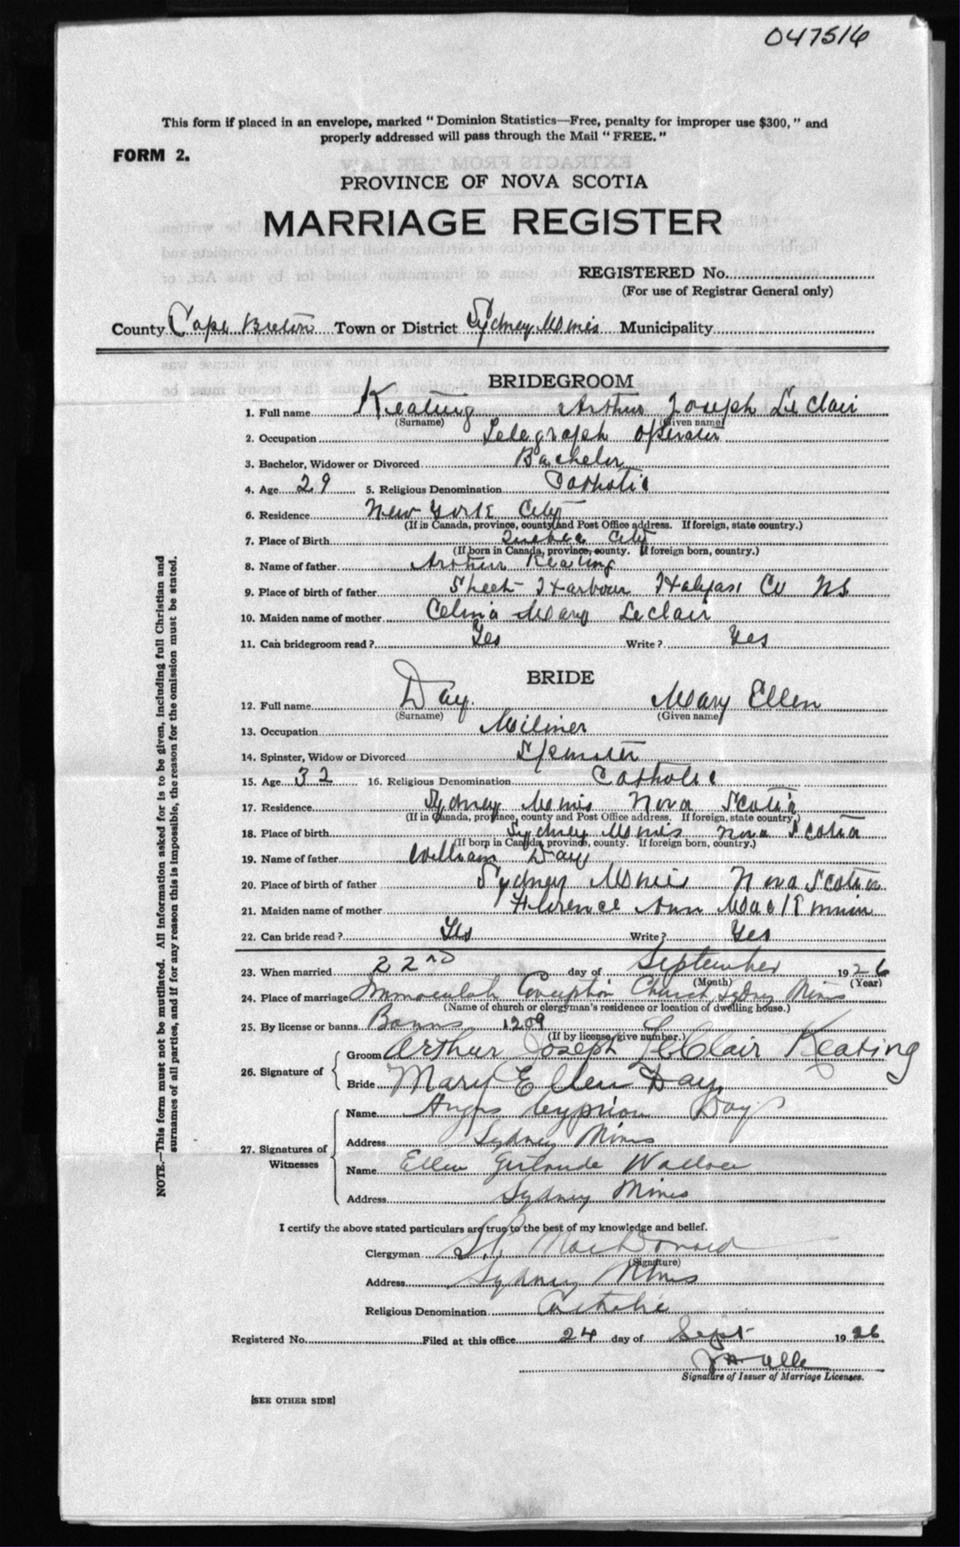 047516
This form if placed in an envelope, marked " Dominion Statistics—Free, penalty for improper use $300, " and
properly addressed will pass through the Mail " FREE. "
FORM 2.
PROVINCE OF NOVA SCOTIA
MARRIAGE REGISTER
REGISTERED No.
(For use of Registrar General only)
County Cape Breton Town or District Sydney Mines Municipality
BRIDEGROOM
1. Full name Keating Arthur Joseph Le Clair
(Surname) (Given name)
2. Occupation Telegraph Operator
3. Bachelor, Widower or Divorced Bachelor
4. Age 29 5. Religious Denomination Catholic
6. Residence New York City
(If in Canada, province, county and Post Office address. If foreign, state country.)
7. Place of Birth Quebec City
(If born in Canada, province, county. If foreign born, country.)
8. Name of father Arthur Keating
9. Place of birth of father Sheet Harbour Halifax Co NS
10. Maiden name of mother Celina Mary Leclair
11. Can bridegroom read ? Yes Write ? Yes
BRIDE
12. Full name Day Mary Ellen
(Surname) (Given name)
13. Occupation Miliner
14. Spinster, Widow or Divorced Spinster
15. Age 32 16. Religious Denomination Catholic
17. Residence Sydney Mines Nova Scotia
(If in Canada, province, county and Post Office address. If foreign, state country.)
18. Place of birth Sydney Mines Nova Scotia
(If born in Canada, province, county. If foreign born, country.)
19. Name of father William Day
20. Place of birth of father Sydney Mines Nova Scotia
21. Maiden name of mother Florence Ann
22. Can bride read ? Yes Write ? Yes
23. When married 22nd day of September 1926
(Month) (Year)
24. Place of marriage Immaculate Conception Church, Sydney Mines
(Name of church or clergyman's residence or location of dwelling house.)
25. By license or banns Banns 1209
(If by license, give number.)
26. Signature of
Groom Arthur Joseph LeClair Keating
Bride Mary Ellen Day
27. Signatures of Witnesses
Name Angus Cyprian Day
Address Sydney Mines
Name Ellen Gertrude Wallace
Address Sydney Mines
I certify the above stated particulars are true to the best of my knowledge and belief.
Clergyman MacDonald
(Signature)
Address Sydney Mines
Religious Denomination Catholic
Registered No. Filed at this office 24 day of Sept 1926
Signature of Issuer of Marriage Licenses.
[SEE OTHER SIDE]
NOTE.—This form must not be mutilated. All information asked for is to be given, including full Christian and
surnames of all parties, and if for any reason this is impossible, the reason for the omission must be stated.